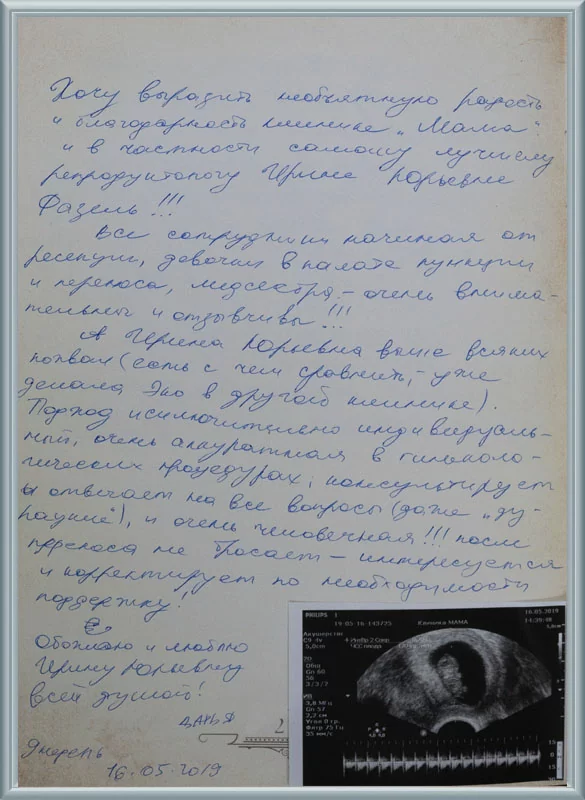 Хочу выразить необъятную радость
и благодарность клинике „Мама"
и в частности самому лучшему
репродуктологу Ирине Юрьевне
Фазель !!!
Все сотрудники начиная от
ресепшн, девочки в палате пункции
и переноса, медсестра – очень внима-
тельны и отзывчивы !!!
А Ирина Юрьевна выше всяких
похвал (есть с чем сравнить, – уже
делала Эко в другой клинике).
Подход исключительно индивидуаль-
ный, очень аккуратная в гинеколо-
гических процедурах, консультирует
и отвечает на все вопросы (даже „ду-
рацкие"), и очень человечная !!! после
переноса не бросает – интересуется
и корректирует по необходимости
поддержку!
Обожаю и люблю
Ирину Юрьевну
всей душой!
ДАРЬЯ
2
16.05.2019
PHILIPS
16.05.2019
19-05-16-143725
Клиника МАМА
14:39:38
Акушерство
C9-4v
5,0cm
ЧСС плода
2D
Gn 60
56
3/3/2
Gn 57
2,2 см
Угол 0 гр.
Фильтр 75 Гц
35 мм/с
15